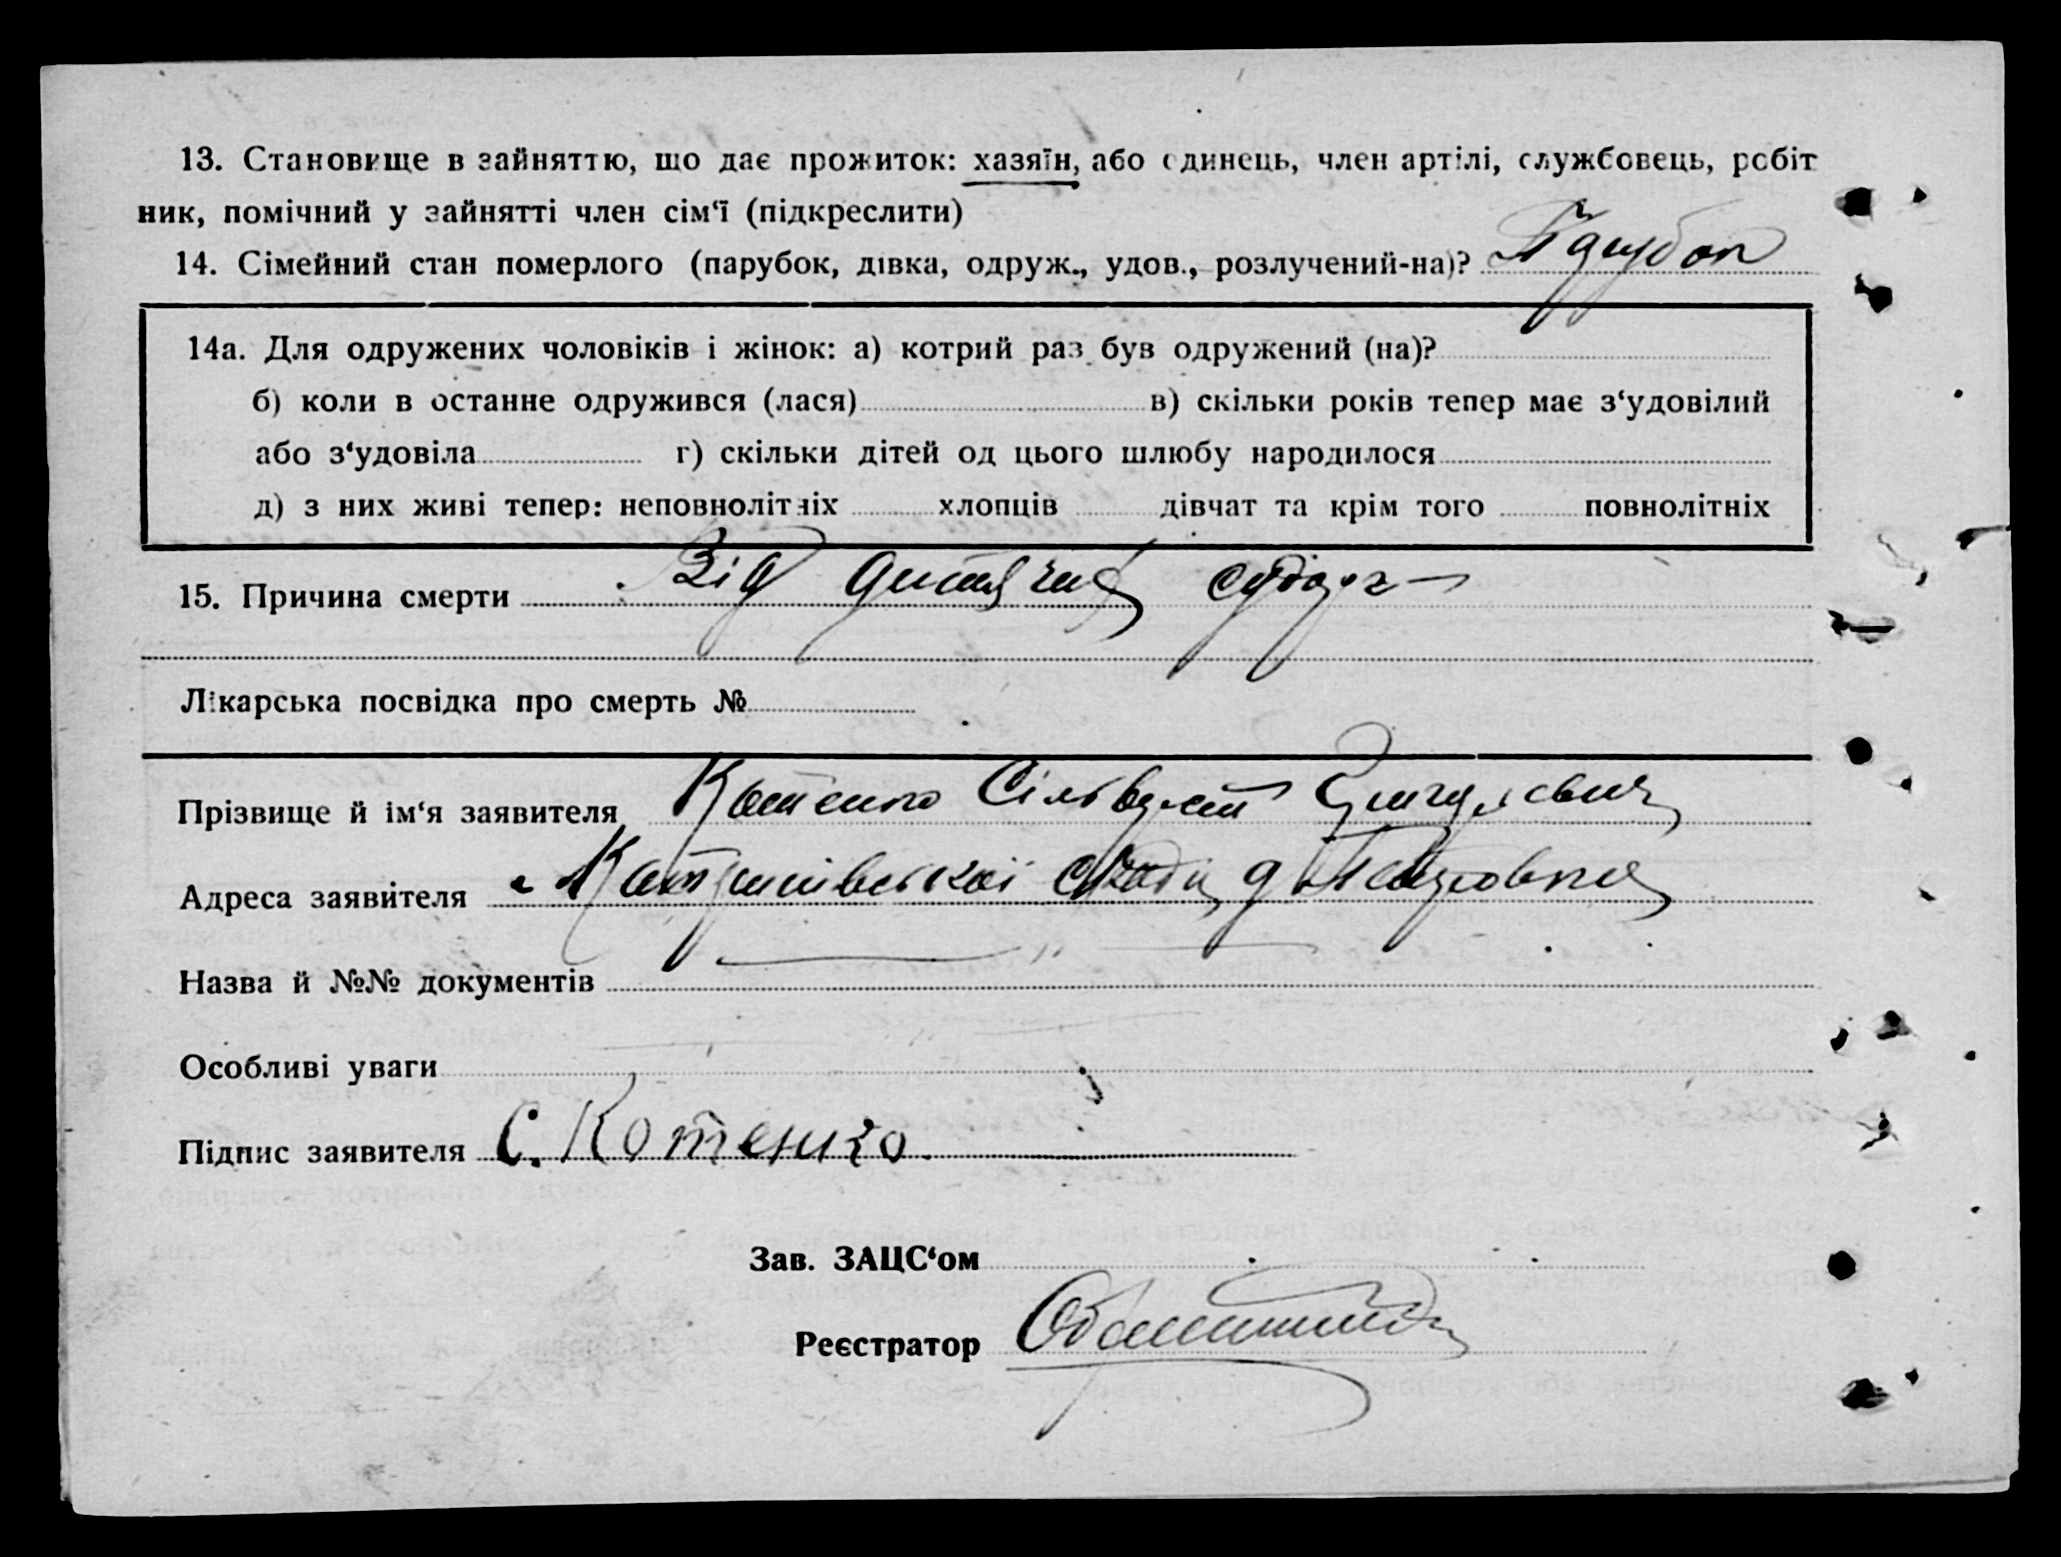 13. Становище в зайняттю, що дає прожиток: хазяїн, або єдинець, член артілі, службовець, робіт
ник, помічний у зайнятті член сім‘ї (підкреслити)
14. Сімейний стан померлого (парубок, дівка, одруж., удов., розлучений-на)? Парубок
14а. Для одружених чоловіків і жінок: а) котрий раз був одружений (на)?
б) коли в останне одружився (лася) в) скільки років тепер має з‘удовілий
або з‘удовіла г) скільки дітей од цього шлюбу народилося
д) з них живі тепер: неповнолітніх хлопців дівчат та крім того повнолітніх
15. Причина смерти Від дитячих судорг
Лікарська посвідка про смерть №
Прізвище й ім‘я заявителя Котенко Сільвестр
Адреса заявителя
Назва й №№ документів
Особливі уваги
Підпис заявителя С. Котенко
Зав. ЗАЦС‘ом
Реєстратор